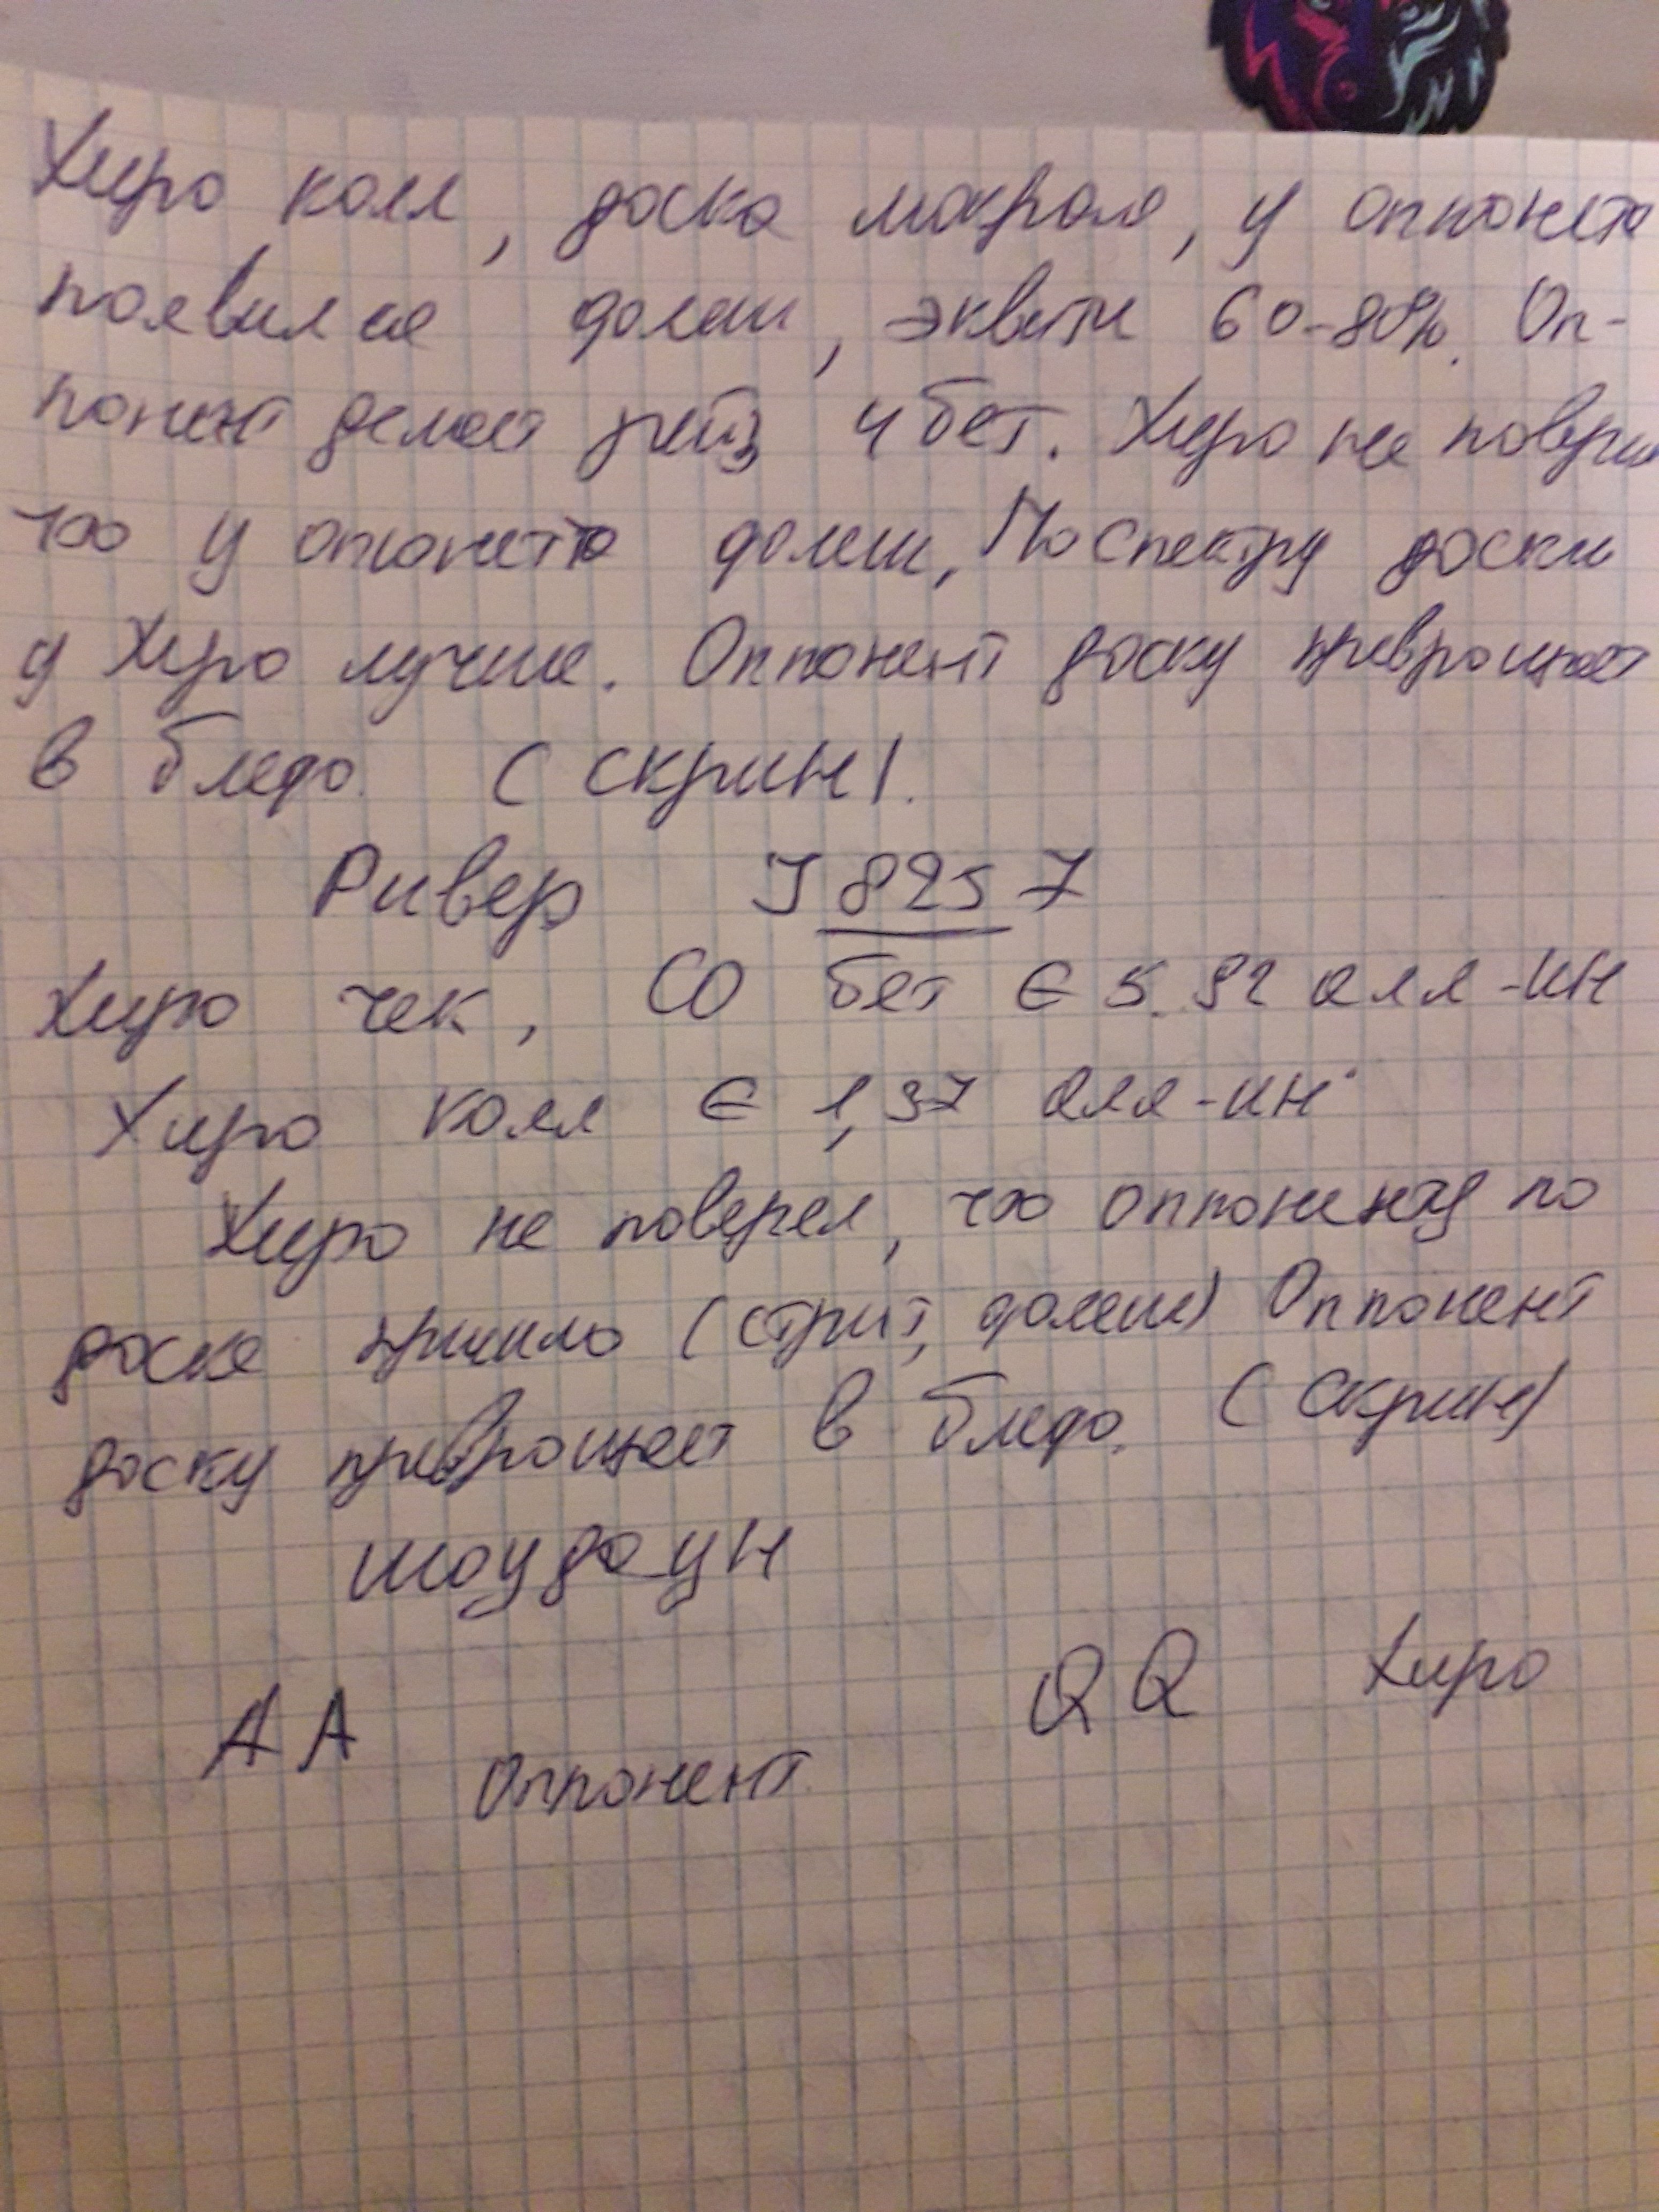 Хиро колл, доска мокрая, у оппонента
появился флеш, эквити 60-80%. Оп-
понент делает рейз 4 бет. Хиро не поверил
что у опонента флеш, По спектру доски
у Хиро лучше. Оппонент доску превращает
в блеф. (скрин).
Ривер J 825 7
Хиро чек, CO бет € 5.92 алл-ин
Хиро колл € 1,37 алл-ин.
Хиро не поверел, что оппоненту по
доске пришло (стрит, флеш) Оппонент
доску превращает в блеф. (скрин)
шоудаун
QQ Хиро
AA оппонент